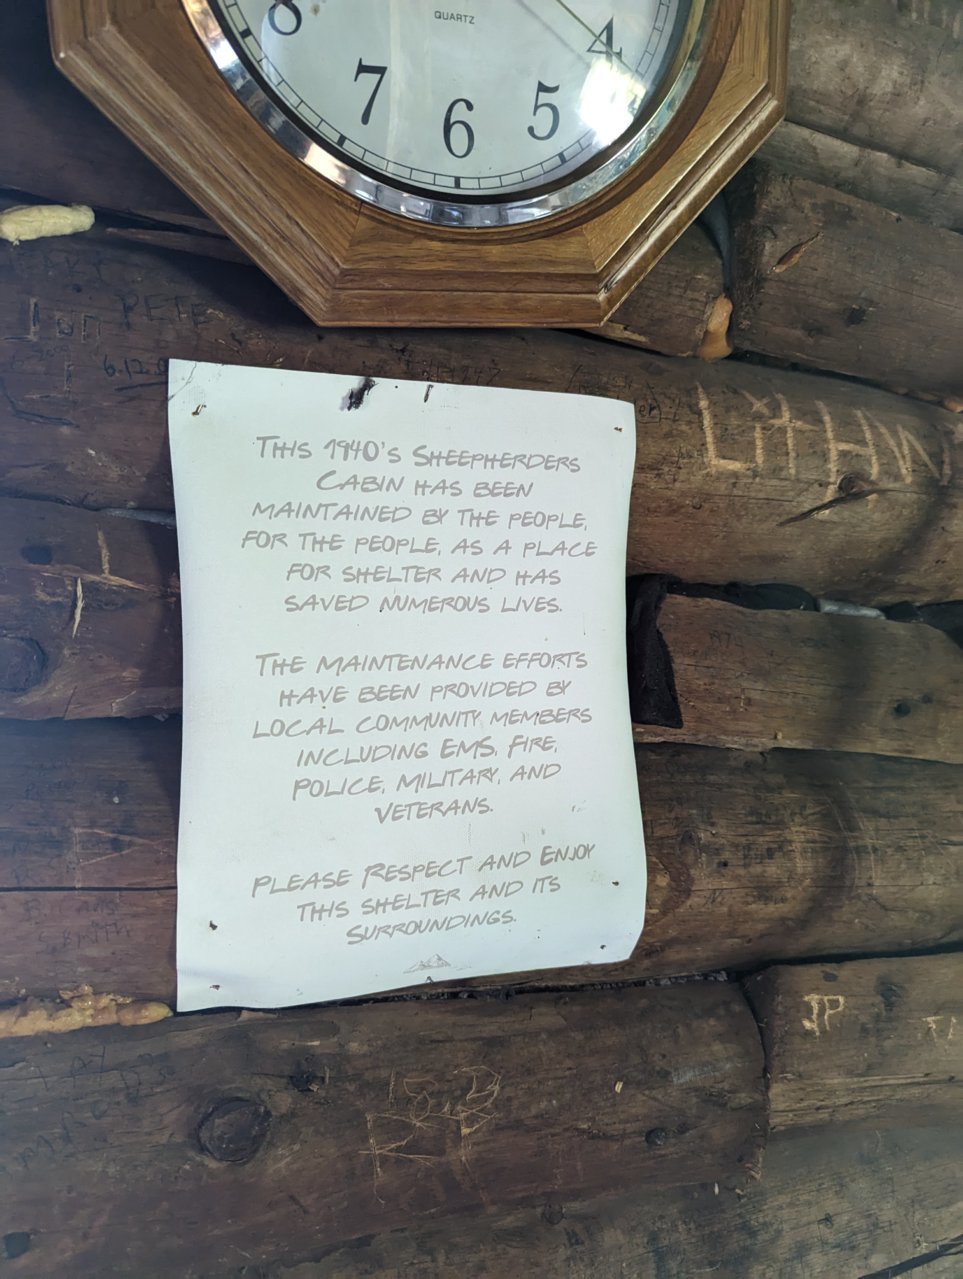 8
QUARTZ
4
7
5
6
PETE
6.12.0
THIS 1940'S SHEEPHERDERS
CABIN HAS BEEN
MAINTAINED BY THE PEOPLE,
FOR THE PEOPLE, AS A PLACE
FOR SHELTER AND HAS
SAVED NUMEROUS LIVES.
THE MAINTENANCE EFFORTS
HAVE BEEN PROVIDED BY
LOCAL COMMUNITY MEMBERS
INCLUDING EMS, FIRE,
POLICE, MILITARY, AND
VETERANS.
PLEASE RESPECT AND ENJOY
THIS SHELTER AND ITS
SURROUNDINGS.
JP